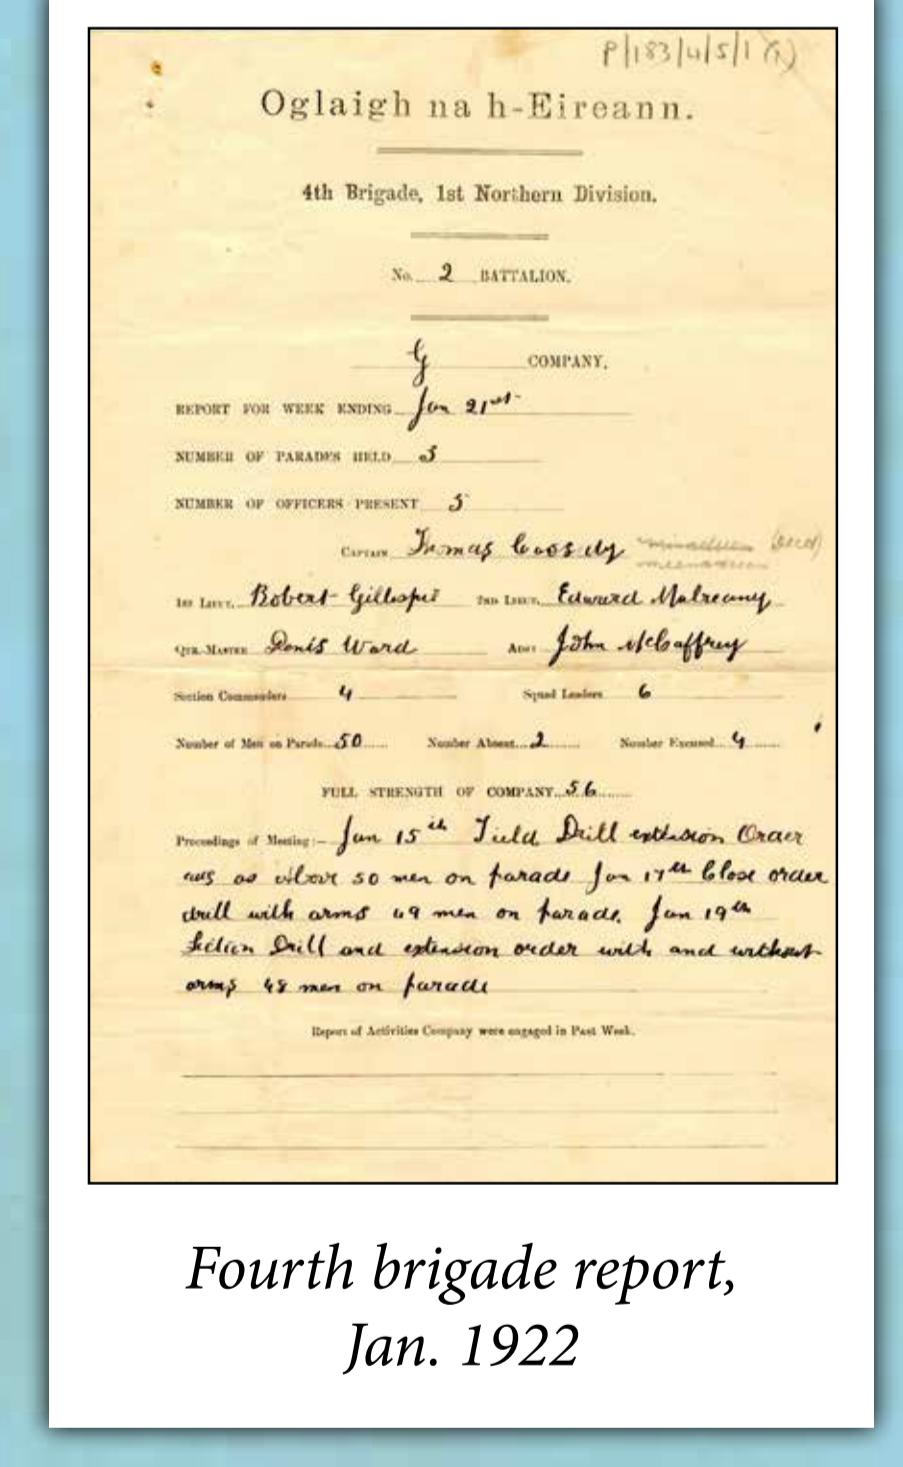 P/183/4/5/1 (1)
Oglaigh na h-Eireann.
4th Brigade, 1st Northern Division.
No. 2 BATTALION.
G COMPANY.
REPORT FOR WEEK ENDING Jan 21st
NUMBER OF PARADES HELD 3
NUMBER OF OFFICERS PRESENT 5
CAPTAIN Tomas Cassidy
1ST LIEUT. Robert Gillespie 2ND LIEUT. Edward Mulreany
QTR.-MASTER Denis Ward ADJT John McCaffrey
Section Commanders 4 Squad Leaders 6
Number of Men on Parade 50 Number Absent 2 Number Excused 4
FULL STRENGTH OF COMPANY 56
Proceedings of Meeting:— Jan 15th Field Drill extension Order
as above 50 men on parade Jan 17th Close order
drill with arms 49 men on parade. Jan 19th
Section Drill and extension order with and without
arms 48 men on parade
Report of Activities Company were engaged in Past Week.
Fourth brigade report,
Jan. 1922